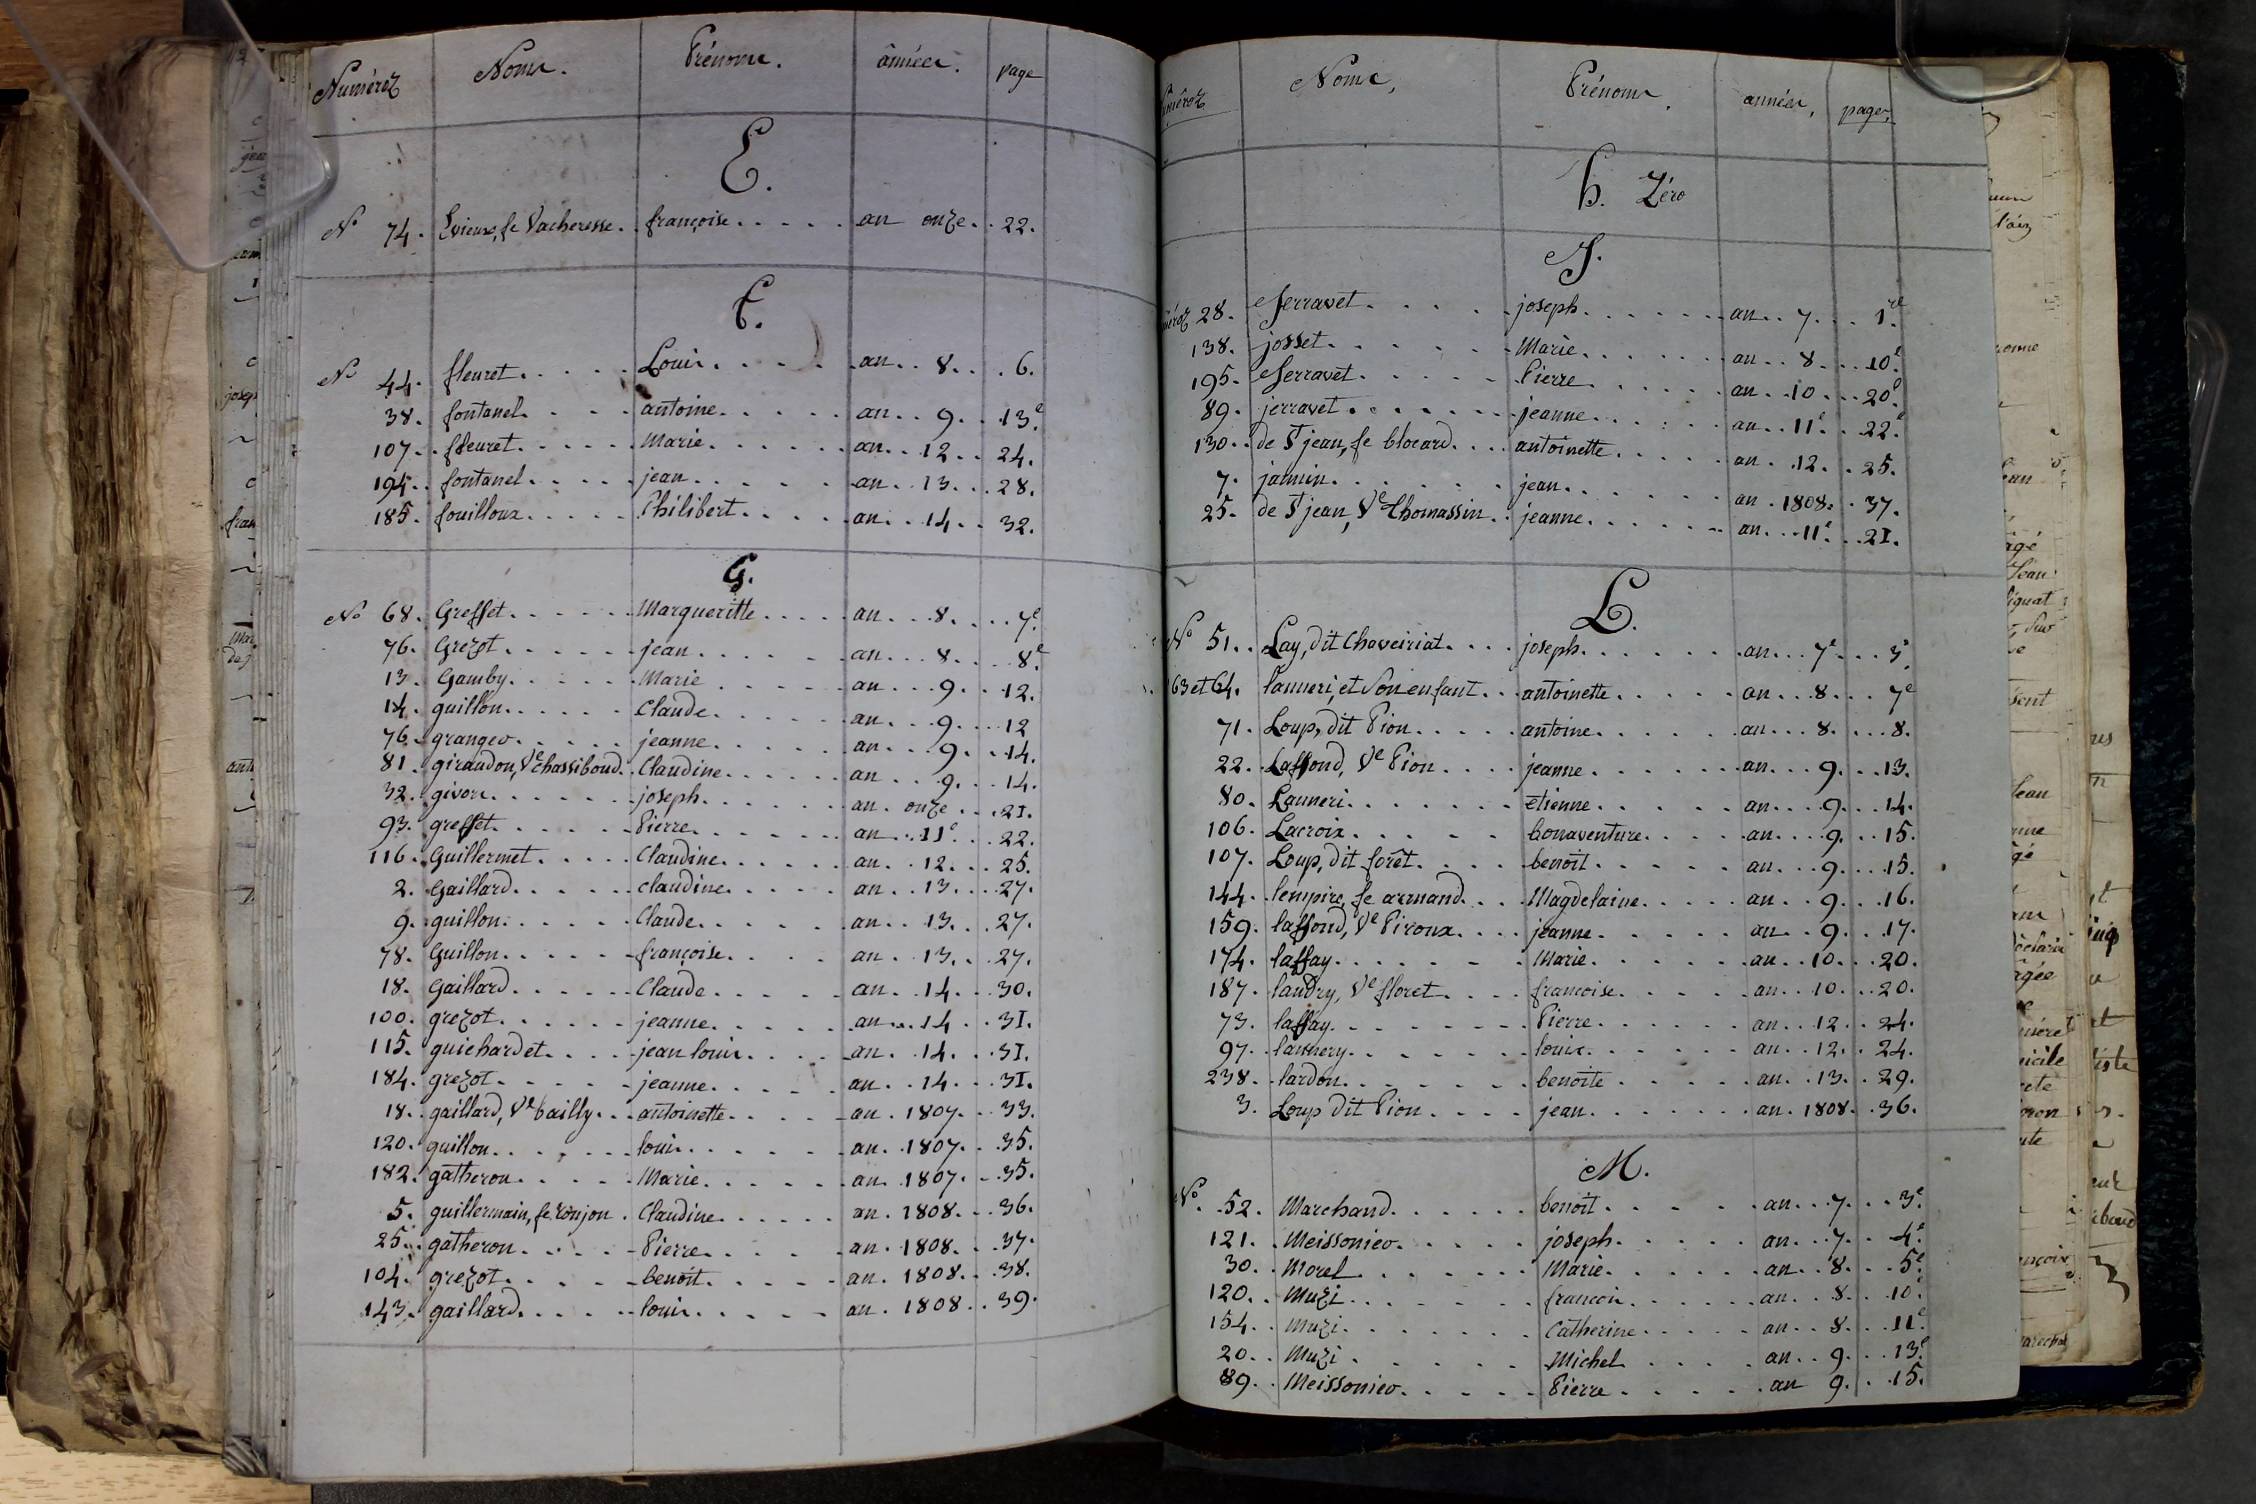 Numéroz Noms. Prénoms. années. page
E.
N° 74. Evieux, fe Vacheresse. françoise. an onze. 22.
F.
N° 44. fleuret. Louis. an 8. 6.
38. fontanel. antoine. an 9. 13.e
107. fleuret. Marie. an 12. 24.
194. fontanel. jean. an 13. 28.
185. fouilloux. Philibert. an 14. 32.
G.
N° 68. Greffet. Margueritte. an 8. 7.e
76. Grezot. jean. an 8. 8.e
13. Gamby. Marie. an 9. 12.
14. guillon. Claude. an 9. 12
76. granger. jeanne. an 9. 14.
81. giraudon, Ve chassiboud. Claudine. an 9. 14.
32. givors. joseph. an onze. 21.
93. greffet. Pierre. an 11e. 22.
116. Guillermet. Claudine. an 12. 25.
2. Gaillard. claudine. an 13. 27.
9. guillon. Claude. an 13. 27.
78. Guillon. françoise. an 13. 27.
18. Gaillard. Claude. an 14. 30.
100. grezot. jeanne. an 14. 31.
115. guichardet. jean louis. an 14. 31.
184. grezot. jeanne. an 14. 31.
18. gaillard, Ve bailly. antoinette. an 1807. 33.
120. guillon. louis. an 1807. 35.
182. gatheron. Marie. an 1807. 35.
5. guillermain, fe Roujon. Claudine. an 1808. 36.
25. gatheron. Pierre. an 1808. 37.
104. grezot. benoit. an 1808. 38.
143. gaillard. louis. an 1808. 39.
Noms, Prénoms, années, pages
h. Zéro
J.
28. Jerravet. joseph. an 7. 1.re
138. josset. Marie. an 8. 10.e
195. Jerravet. Pierre. an 10. 20.e
89. jerravet. jeanne. an 11e. 22.e
130. de St jean, fe blocard. antoinette. an 12. 25.
7. jamin. jean. an 1808. 37.
25. de St jean, Ve thomassin. jeanne. an 11e. 21.
L.
N° 51. Lay, dit Chaveiriat. joseph. an 7e. 3e.
63 et 64. lanneri, et Son enfant. antoinette. an 8. 7e
71. Loup, dit Pion. antoine. an 8. 8.
22. Laffond, Ve Pion. jeanne. an 9. 13.
80. Lanneri. etienne. an 9. 14.
106. Lacroix. bonaventure. an 9. 15.
107. Loup, dit forêt. benoit. an 9. 15.
144. lempire, fe armand. Magdelaine. an 9. 16.
159. laffond, Ve Piroux. jeanne. an 9. 17.
174. laffay. Marie. an 10. 20.
187. landry, Ve floret. francoise. an 10. 20.
73. laffay. Pierre. an 12. 24.
97. lannery. louis. an 12. 24.
238. lardon. benoite. an 13. 29.
3. Loup dit Pion. jean. an 1808. 36.
M.
N° 52. Marchand. benoit. an 7. 3.e
121. Meissonier. joseph. an 7. 4.e
30. Morel. Marie. an 8. 5.e
120. Muzi. francois. an 8. 10.e
154. Muzi. Catherine. an 8. 11.e
20. Muzi. Michel. an 9. 13.e
89. Meissonier. Pierre. an 9. 15.